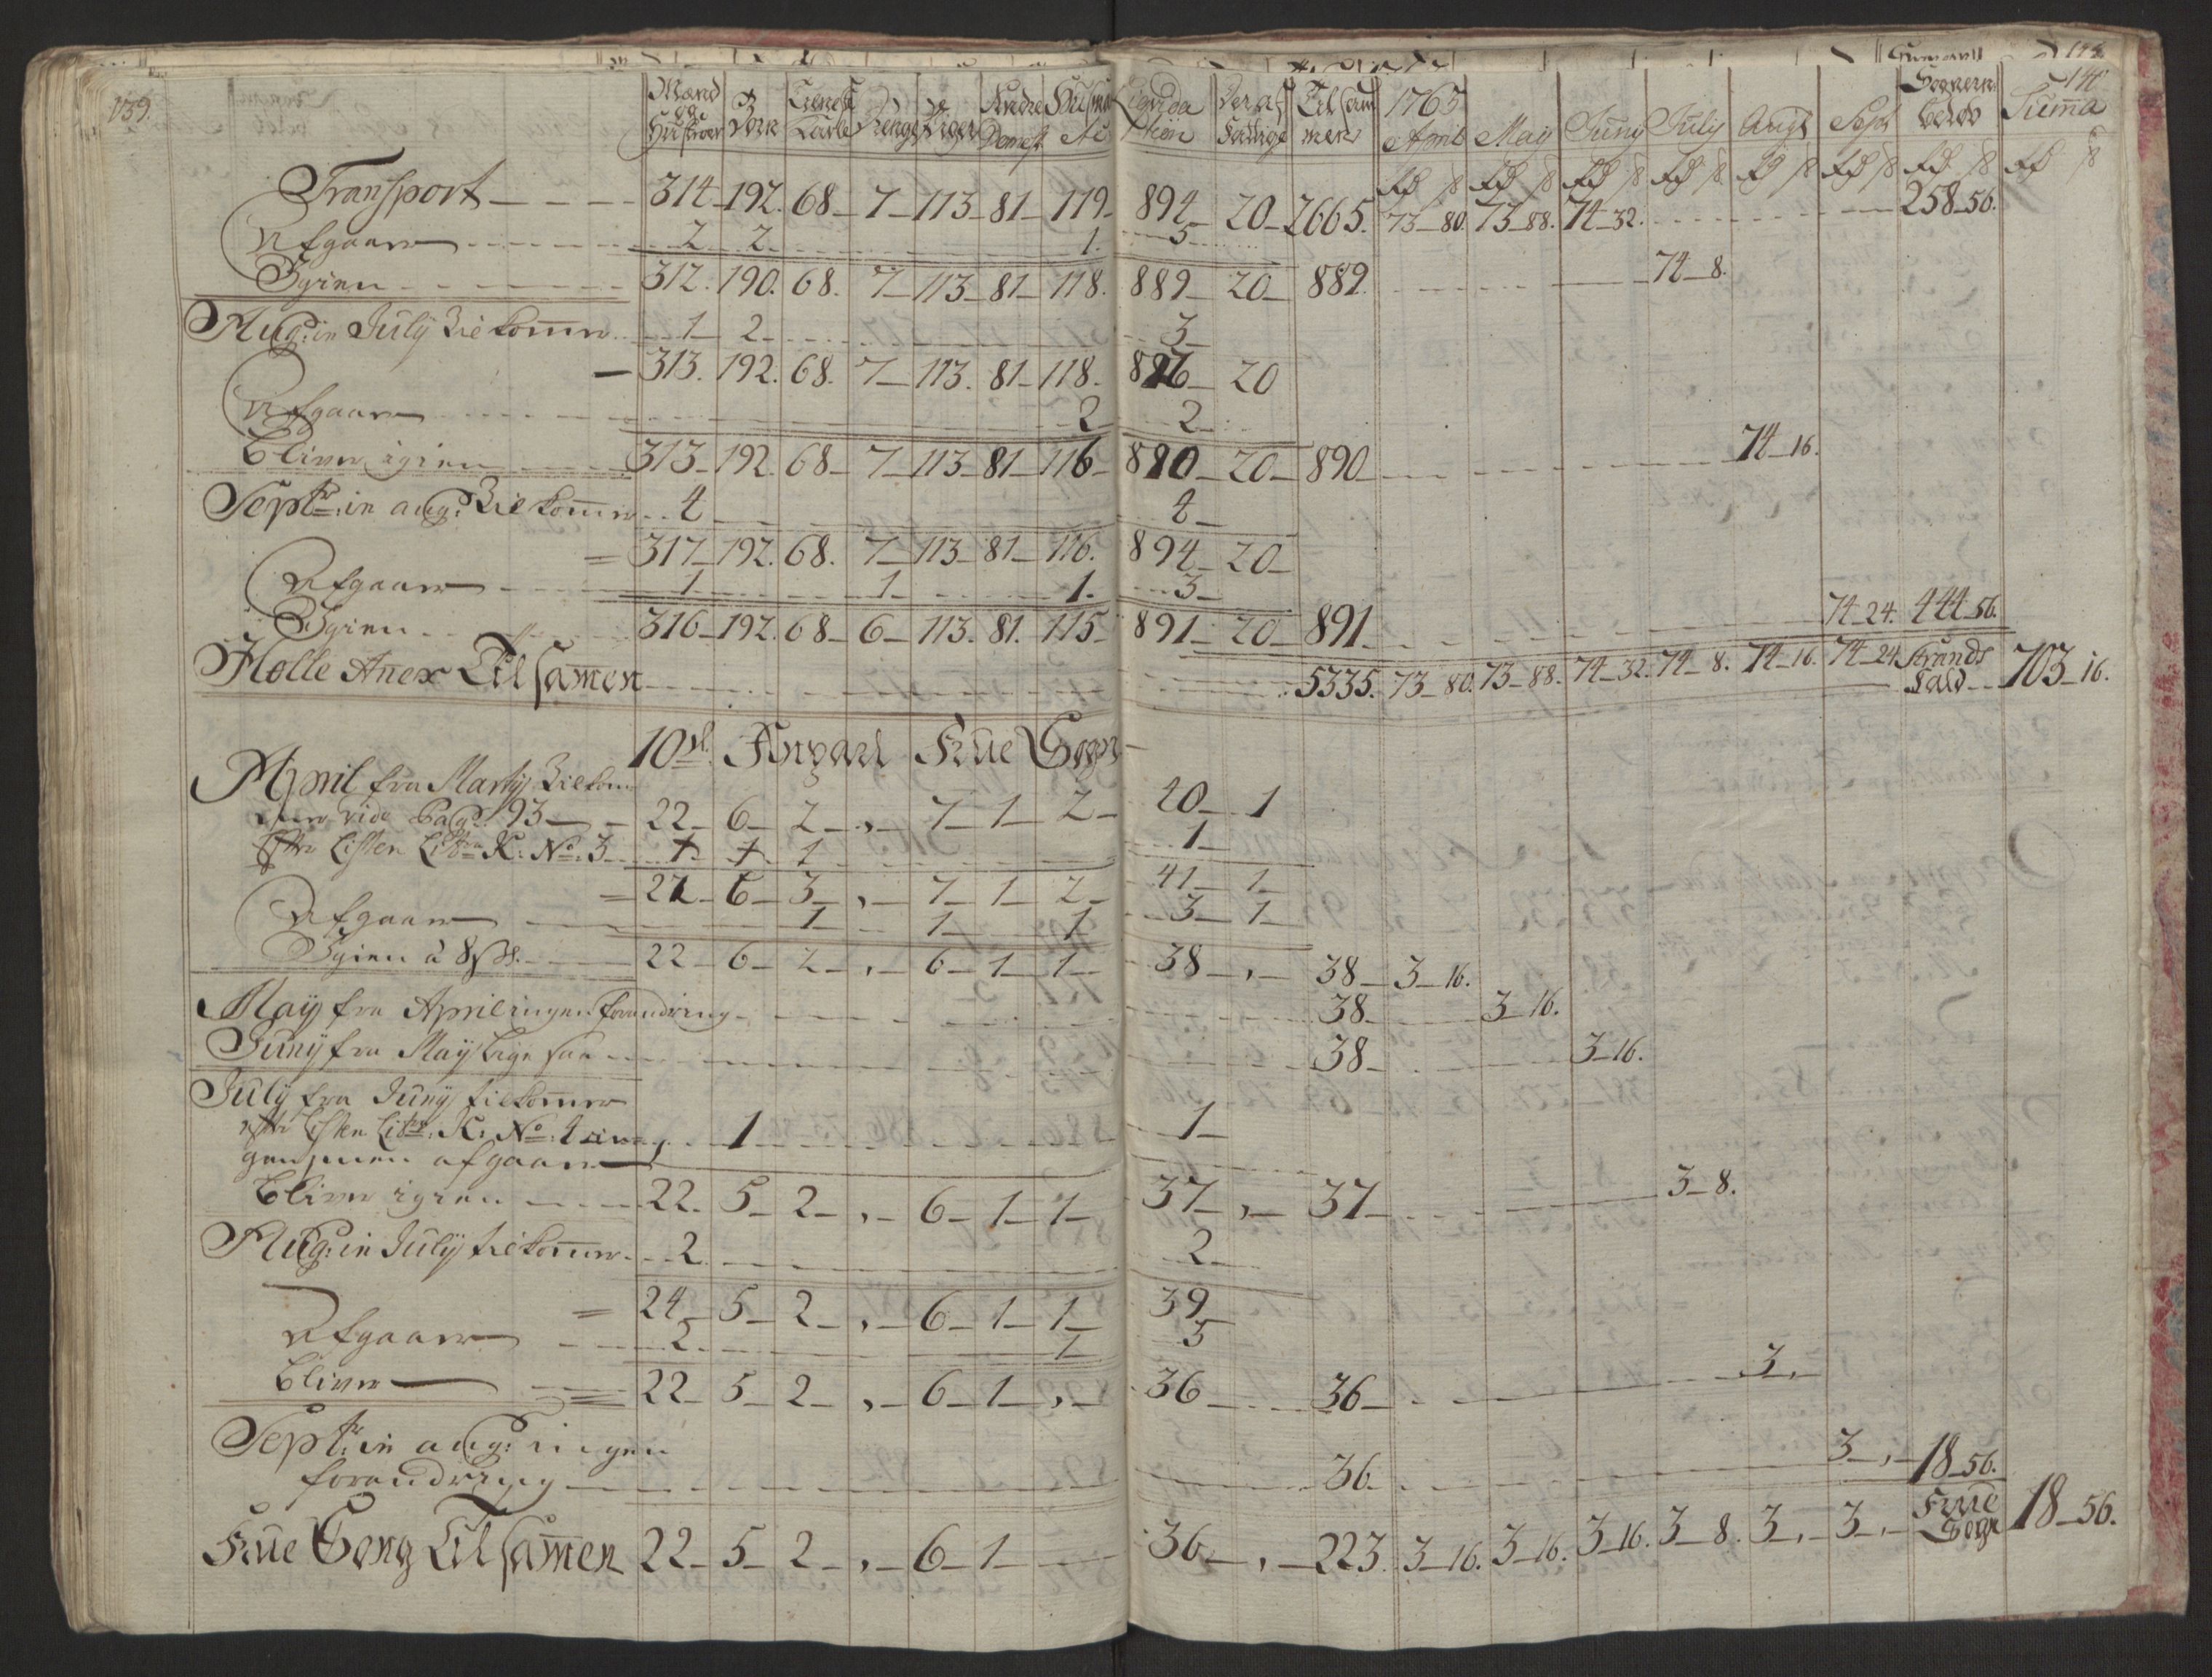 139.
Mænd og Hustruer | Børn | Tieneste Karle | Drenge | Piger | Andre Domest | Huusmd &c | Qvida tkion | Deraf Fattige | Tilsam men | 1765 April | May | Juny | July | Augt | Sept | Sognens beløb | Suma
Rd ß | Rd ß | Rd ß | Rd ß | Rd ß | Rd ß | Rd ß | Rd ß
Transport 314 192. 68 7 113 81 119 894 20 2665. 73 80. 73 88. 74 32. 258 56.
Afgaaer 2 2 1. 5
Igien 312. 190. 68. 7 113 81 118. 889 20 889. 74 8.
Aug: in July Tilkomer 1 2 3
313. 192. 68. 7 113. 81 118. 896 20
Afgaaer 2 2
bliver igien 313 192. 68 7 113 81 116 890 20 890 74 16.
Septr: in aug: Tilkomer 4 4
317 192. 68. 7 113 81 116. 894 20
Afgaaer 1 1 1. 3
Igien 316 192. 68 6 113. 81. 115 891 20 891 74 24. 444 56.
Holle Anex Tilsamen 5335. 73 80. 73 88. 74 32. 74 8. 74 16. 74 24 Strands Fald 703 16.
10de Frue Sogn
April fra Marty Tilkom
mer vide Pag: 93 22 6 2 , 7 1 2 40 1
Efter Listen Litra K: No: 3 1 1
22 6 3 , 7 1 2 41 1
Afgaaer 1 1 1 3 1
Igien à 8 ß 22 6 2 , 6 1 1 38 , 38 3 16.
May fra April ingen forandring 38 3 16.
Juny fra May lige saa 38 3 16.
July fra Juny tilkomer
efter Listen Litr: K: No: 4 in 1 1
gen, men afgaaer
bliver igien 22. 5 2 , 6 1 1 37 , 37 3 8.
Aug: in July tilkomer 2 2
24 5 2 , 6 1 1 39
Afgaaer 2 1 3
bliver 22 5 2 , 6 1 , 36 36 3 ,
Septr: in aug: ingen
forandring 36. 3 , 18 56.
Frue Sogn Tilsamen 22 5 2 , 6 1 36 , 223. 3 16. 3 16. 3 16. 3 8. 3 , 3 , Frue Sogn 18 56.